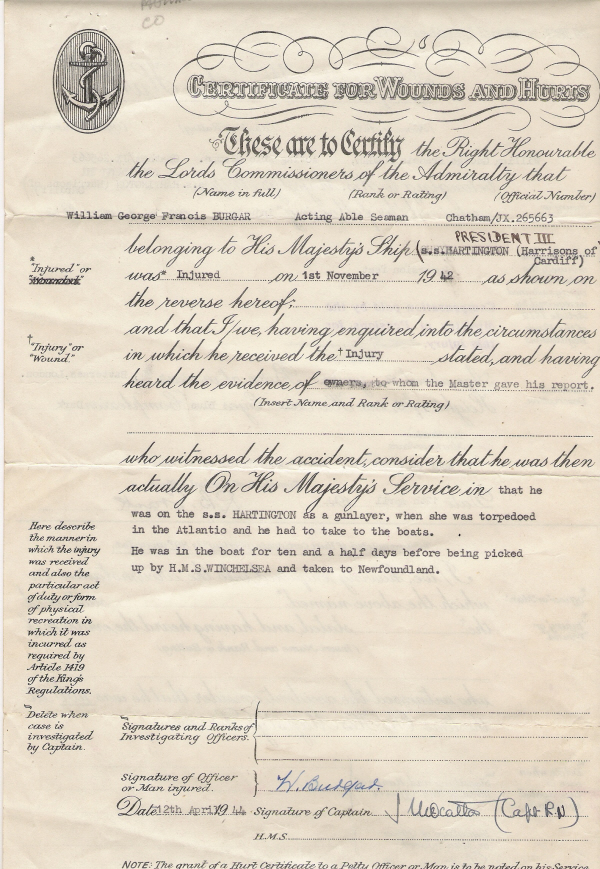 CO
CERTIFICATE FOR WOUNDS AND HURTS
These are to Certify the Right Honourable
the Lords Commissioners of the Admiralty that
(Name in full) (Rank or Rating) (Official Number)
William George Francis BURGAR Acting Able Seaman Chatham/JX.265663
PRESIDENT III
belonging to His Majesty's Ship (s.s. HARTINGTON (Harrisons of
Cardiff)
* "Injured" or
"Wounded"
was* Injured on 1st November 1942 as shown on
the reverse hereof;
and that I/we, having enquired into the circumstances
† "Injury" or
"Wound."
in which he received the † Injury stated, and having
heard the evidence of owners, to whom the Master gave his report.
(Insert Name and Rank or Rating)
who witnessed the accident, consider that he was then
actually On His Majesty's Service in that he
was on the s.s. HARTINGTON as a gunlayer, when she was torpedoed
in the Atlantic and he had to take to the boats.
He was in the boat for ten and a half days before being picked
up by H.M.S.WINCHELSEA and taken to Newfoundland.
Here describe
the manner in
which the injury
was received
and also the
particular act
of duty or form
of physical
recreation in
which it was
incurred as
required by
Article 1419
of the King's
Regulations.
Delete when
case is
investigated
by Captain.
Signatures and Ranks of
Investigating Officers.
Signature of Officer
or Man injured.
Date 12th April 1944 Signature of Captain (Capt RN)
H.M.S.
NOTE: The grant of a Hurt Certificate to a Petty Officer or Man is to be noted on his Service